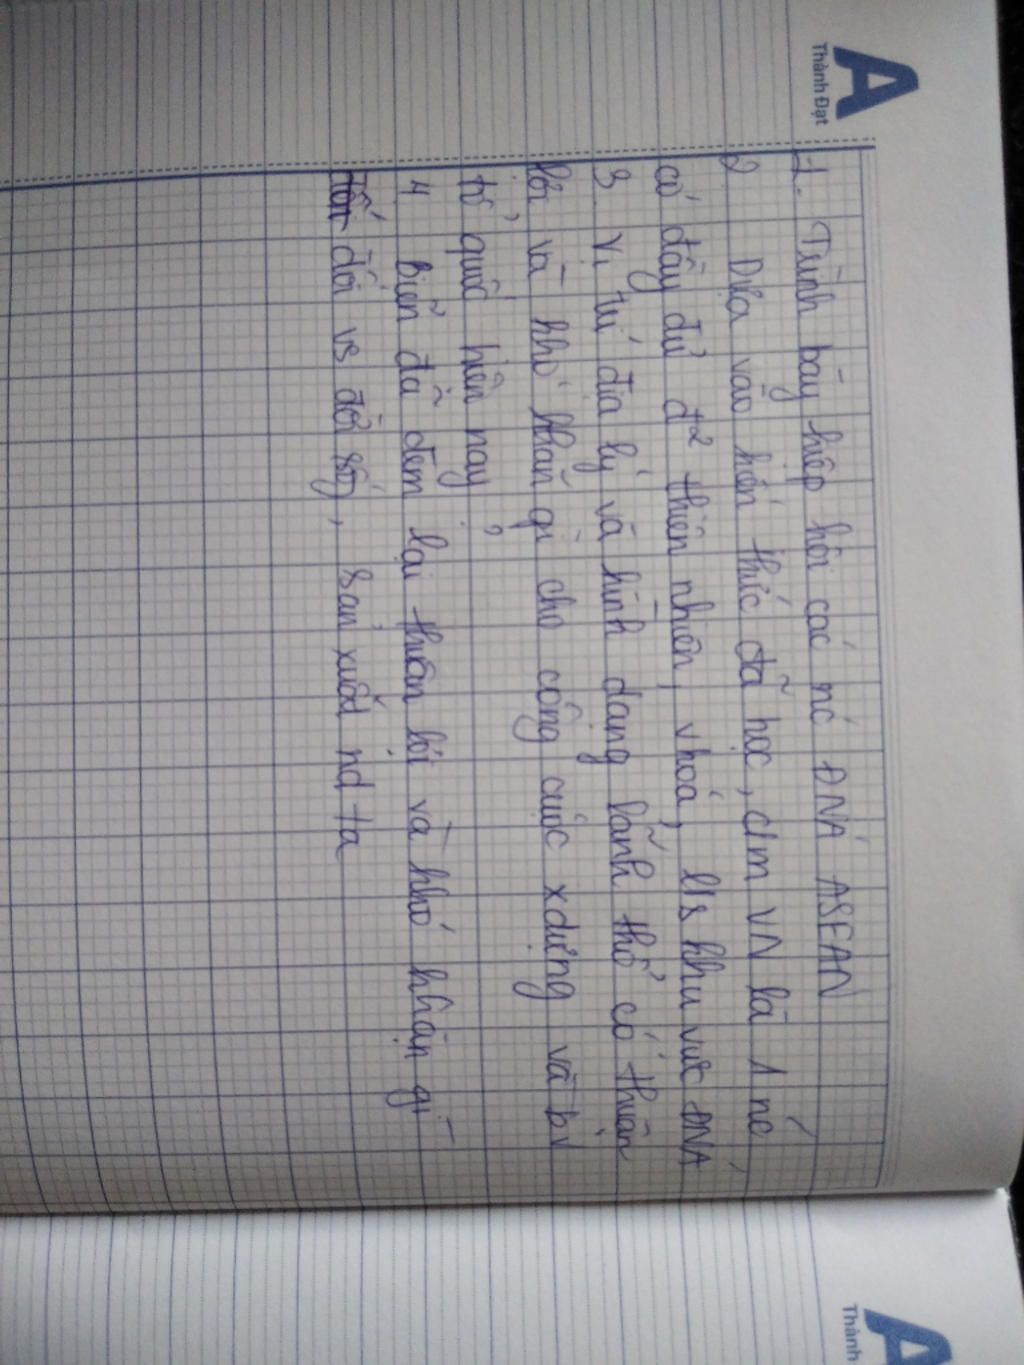 A
Thành Đạt
1. Trình bày hiệp hội các nc ĐNÁ ASEAN
2. Dựa vào kiến thức đã học, c/m VN là 1 nc
có đầy đủ đ² thiên nhiên, vhoá, l/s khu vực ĐNÁ
3. Vị trí địa lý và hình dạng lãnh thổ có thuận
lợi và khó khăn gì cho công cuộc xdựng và bv
tổ quốc hiện nay?
4 Biển đã đem lại thuận lợi và khó khăn gì
đối vs đời sống, sản xuất nd ta
A
Thành